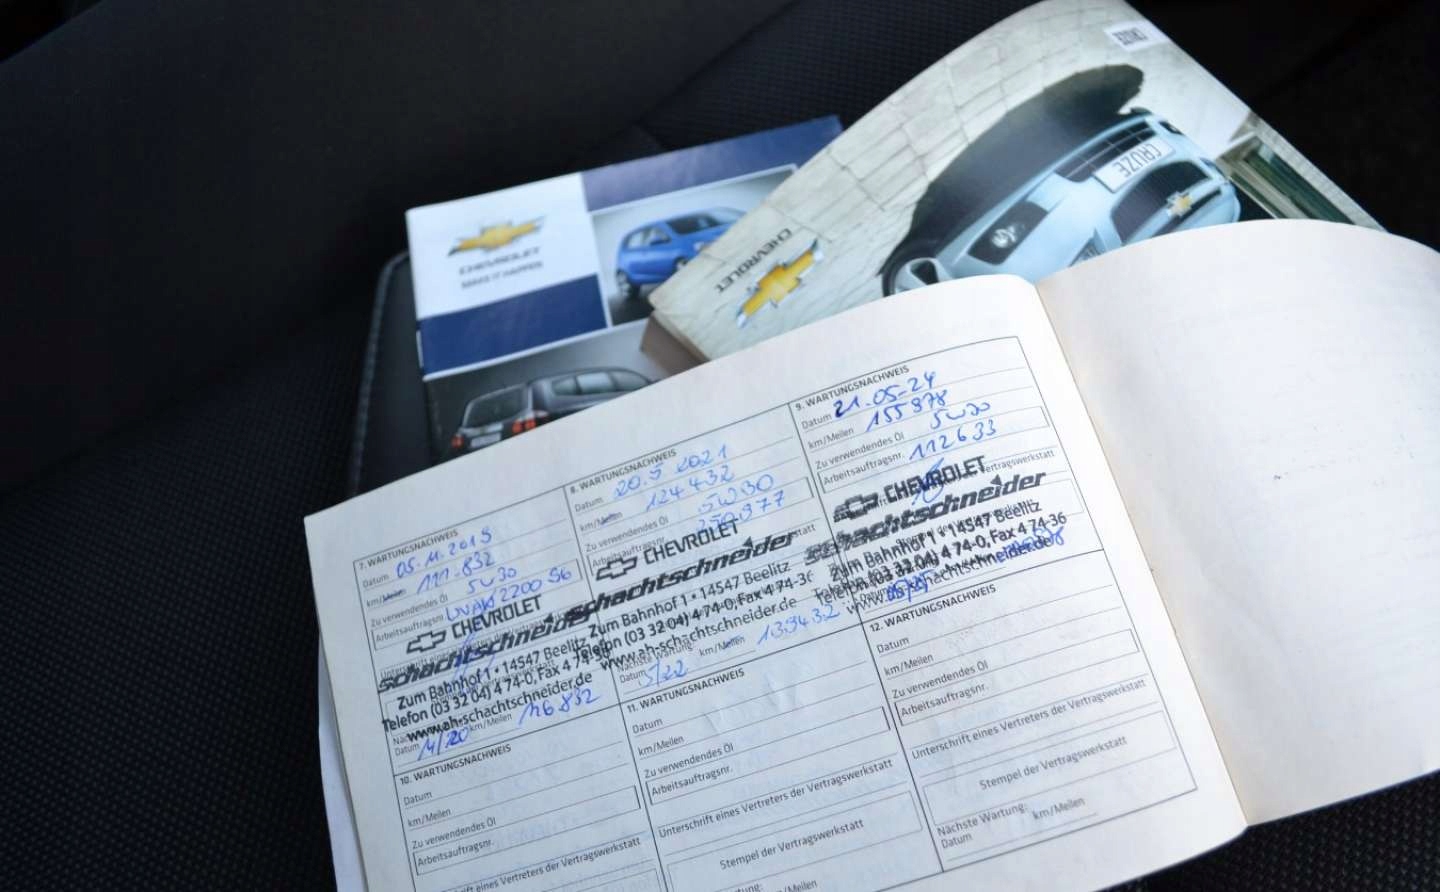 CRUZE
CHEVROLET
CRUZE
CHEVROLET
MAKE IT HAPPEN
7. WARTUNGSNACHWEIS
Datum 05.11.2019
km/Meilen 111.832
Zu verwendendes Öl 5W30
Arbeitsauftragsnr.
CHEVROLET
schachtschneider
Zum Bahnhof 1 • 14547 Beelitz
Telefon (03 32 04) 4 74-0, Fax 4 74-36
www.ah-schachtschneider.de
km/Meilen 126.832
Datum 11/20
8. WARTUNGSNACHWEIS
Datum 20.5.2021
km/Meilen 124.432
Zu verwendendes Öl 5W30
Arbeitsauftragsnr.
CHEVROLET
schachtschneider
Zum Bahnhof 1 • 14547 Beelitz
Telefon (03 32 04) 4 74-0, Fax 4 74-36
www.ah-schachtschneider.de
Nächste Wartung: km/Meilen 139432
Datum 5/22
9. WARTUNGSNACHWEIS
Datum 21.05.24
km/Meilen 155878
Zu verwendendes Öl 5W30
Arbeitsauftragsnr. 112633
CHEVROLET
schachtschneider
Zum Bahnhof 1 • 14547 Beelitz
Telefon (03 32 04) 4 74-0, Fax 4 74-36
www.ah-schachtschneider.de
10. WARTUNGSNACHWEIS
Datum
km/Meilen
Zu verwendendes Öl
Arbeitsauftragsnr.
Unterschrift eines Vertreters der Vertragswerkstatt
11. WARTUNGSNACHWEIS
Datum
km/Meilen
Zu verwendendes Öl
Arbeitsauftragsnr.
Unterschrift eines Vertreters der Vertragswerkstatt
Stempel der Vertragswerkstatt
Nächste Wartung:
km/Meilen
12. WARTUNGSNACHWEIS
Datum
km/Meilen
Zu verwendendes Öl
Arbeitsauftragsnr.
Unterschrift eines Vertreters der Vertragswerkstatt
Stempel der Vertragswerkstatt
Nächste Wartung:
Datum km/Meilen